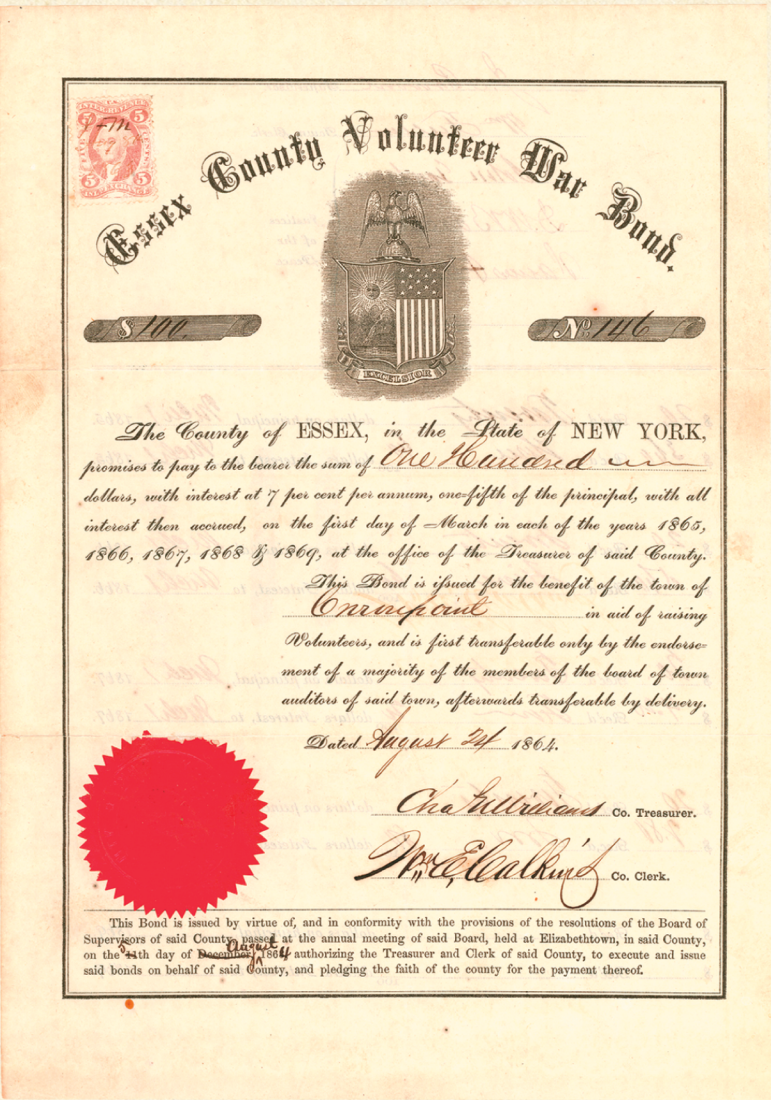 5 5
5 5
Essex County Volunteer War Bond.
$ 100.
No. 146
EXCELSIOR
The County of ESSEX, in the State of NEW YORK,
promises to pay to the bearer the sum of One Hundred
dollars, with interest at 7 per cent per annum, one-fifth of the principal, with all
interest then accrued, on the first day of March in each of the years 1865,
1866, 1867, 1868 & 1869, at the office of the Treasurer of said County.
This Bond is issued for the benefit of the town of
Crownpoint in aid of raising
Volunteers, and is first transferable only by the endorse-
ment of a majority of the members of the board of town
auditors of said town, afterwards transferable by delivery.
Dated August 24 1864.
Co. Treasurer.
Wm. E. Calkins Co. Clerk.
This Bond is issued by virtue of, and in conformity with the provisions of the resolutions of the Board of
Supervisors of said County, passed at the annual meeting of said Board, held at Elizabethtown, in said County,
August
on the 5th day of December, 1864 authorizing the Treasurer and Clerk of said County, to execute and issue
said bonds on behalf of said County, and pledging the faith of the county for the payment thereof.